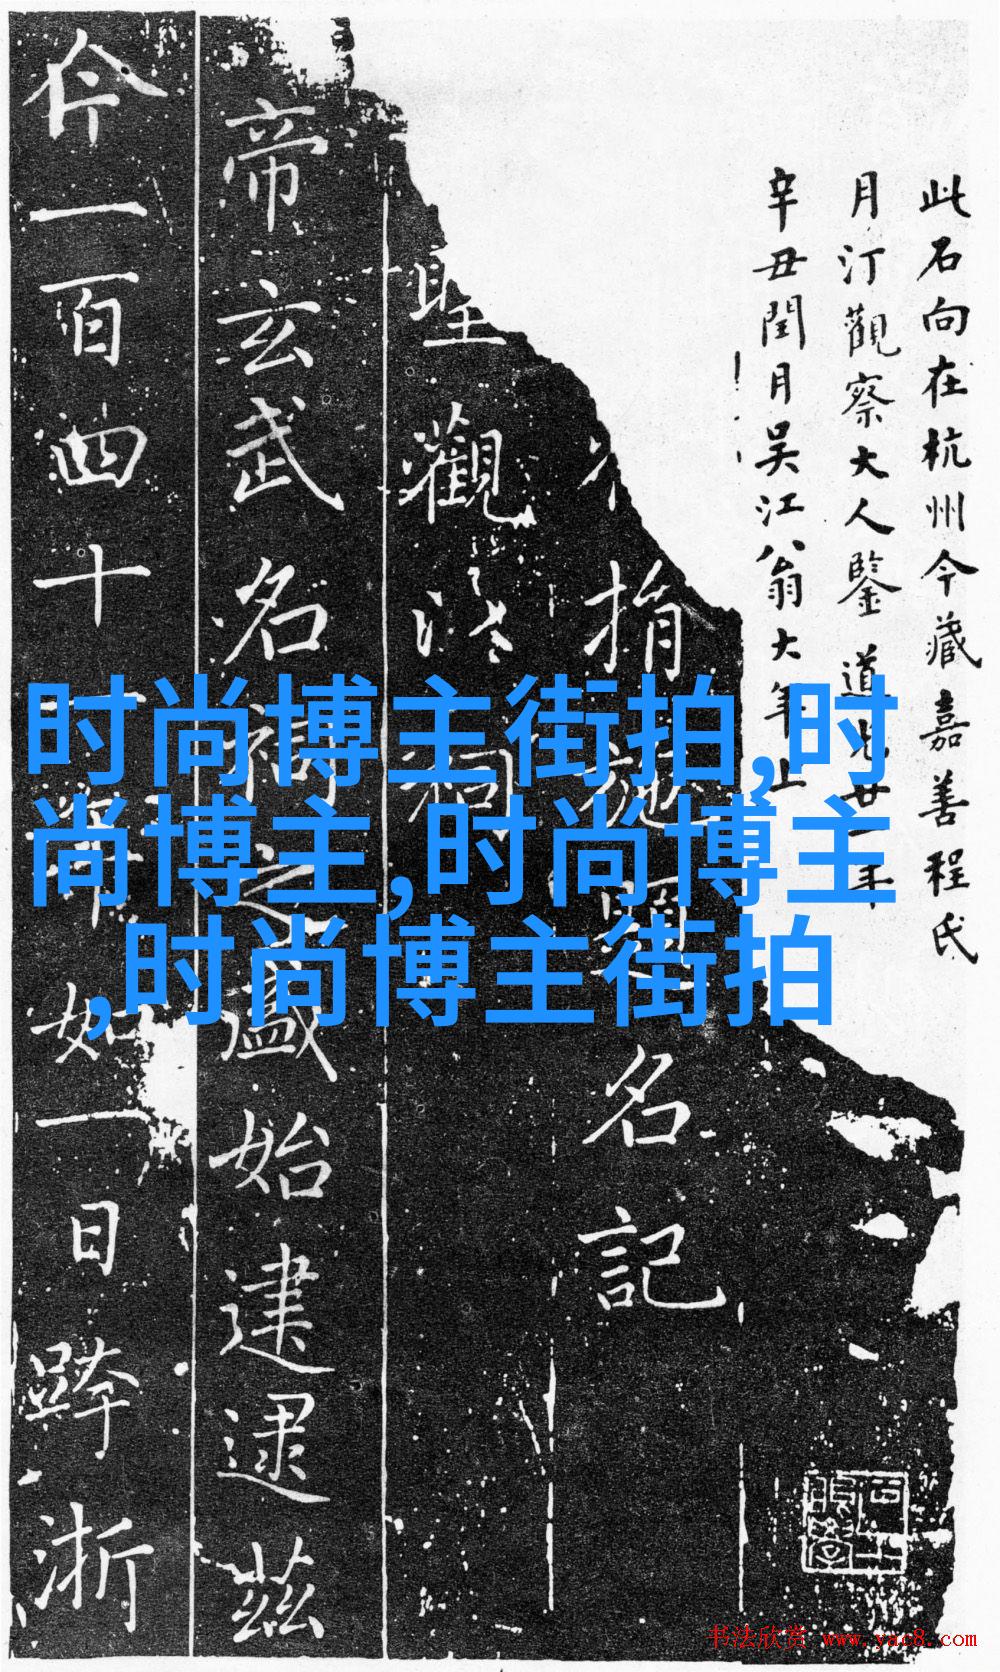 此石向在杭州今藏嘉善程氏
月汀觀察大人鑒 道光廿一年
辛丑閏月吳江翁大年
捐魂題名記
聖觀 祠
帝玄武名 之盛始建逮茲
仐一百四十 年如一日跨浙
时尚博主街拍,时
尚博主,时尚博主
,时尚博主街拍
书法欣赏 www.yac8.com